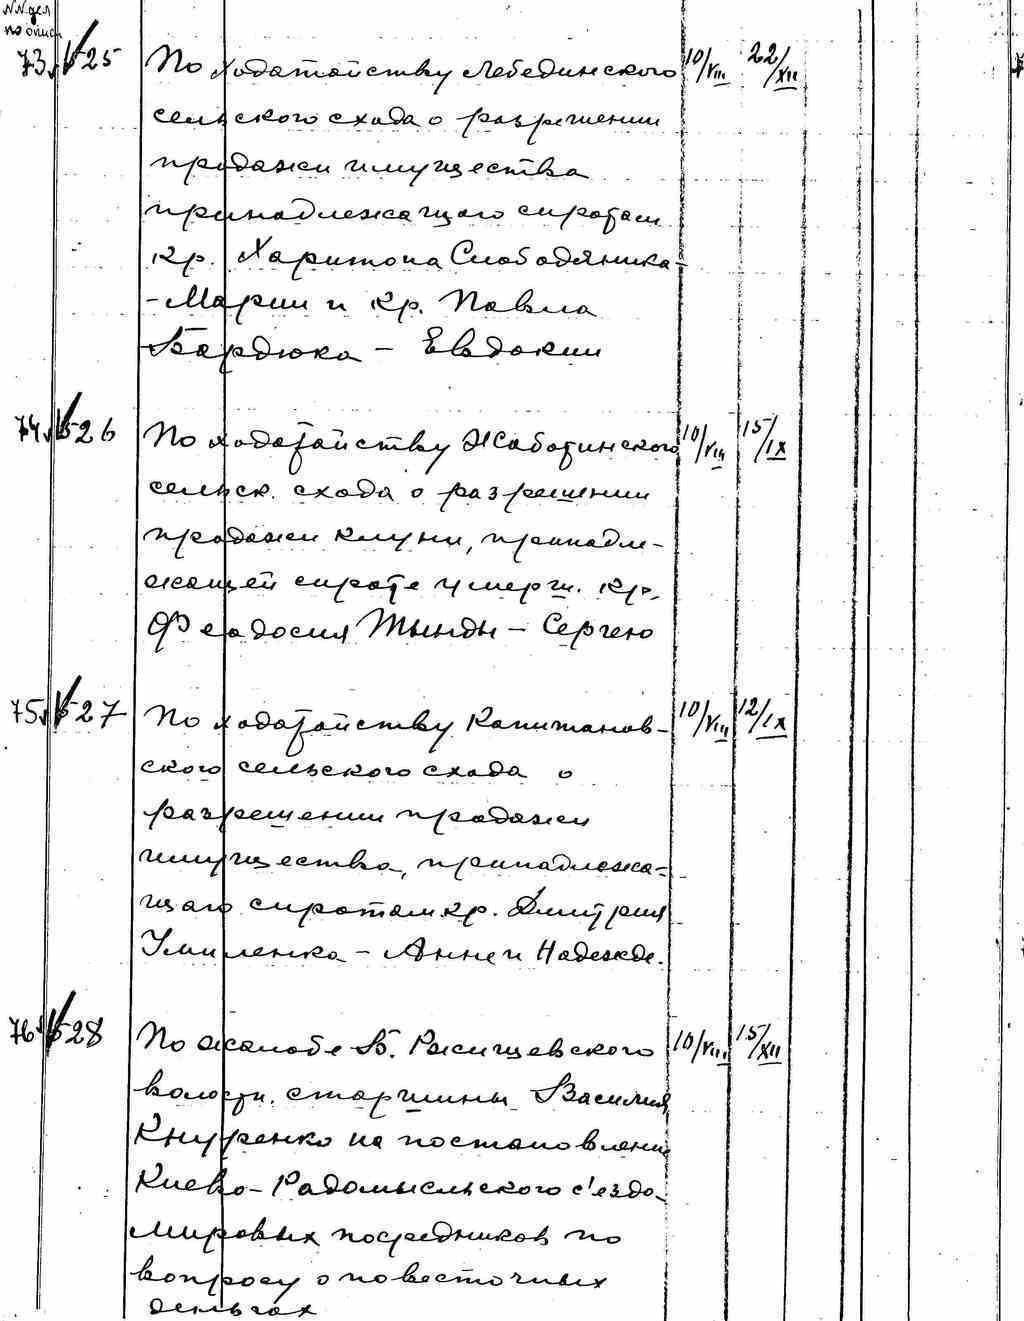 NN дел
по описи
73 525 По ходатайству Лебединского 10/VIII 22/XII
сельского схода о разрешении
продажи имущества
принадлежащого сиротам
кр. Харитона Слободяника-
-Марии и кр. Павла
Бардюка - Евдокии
74 526 По ходатайству Жаботинского 10/VIII 15/IX
сельск. схода о разрешении
продажи клуни, принадле-
жащей сироте умерш. кр.
Феодосия Тынды - Сергею
75 527 По ходатайству Капитанов- 10/VIII 12/IX
ского сельского схода о
разрешении продажи
имущества, принадлежа-
щаго сиротам кр. Дмитрия
Умиленка - Анне и Надежде.
76 528 По жалобе б. Рысищевского 10/VIII 15/XII
волостн. старшины Василия
Кнуренко на постановление
Киево-Радомысльского с'езда
мировых посредников по
вопросу о повесточных
деньгах